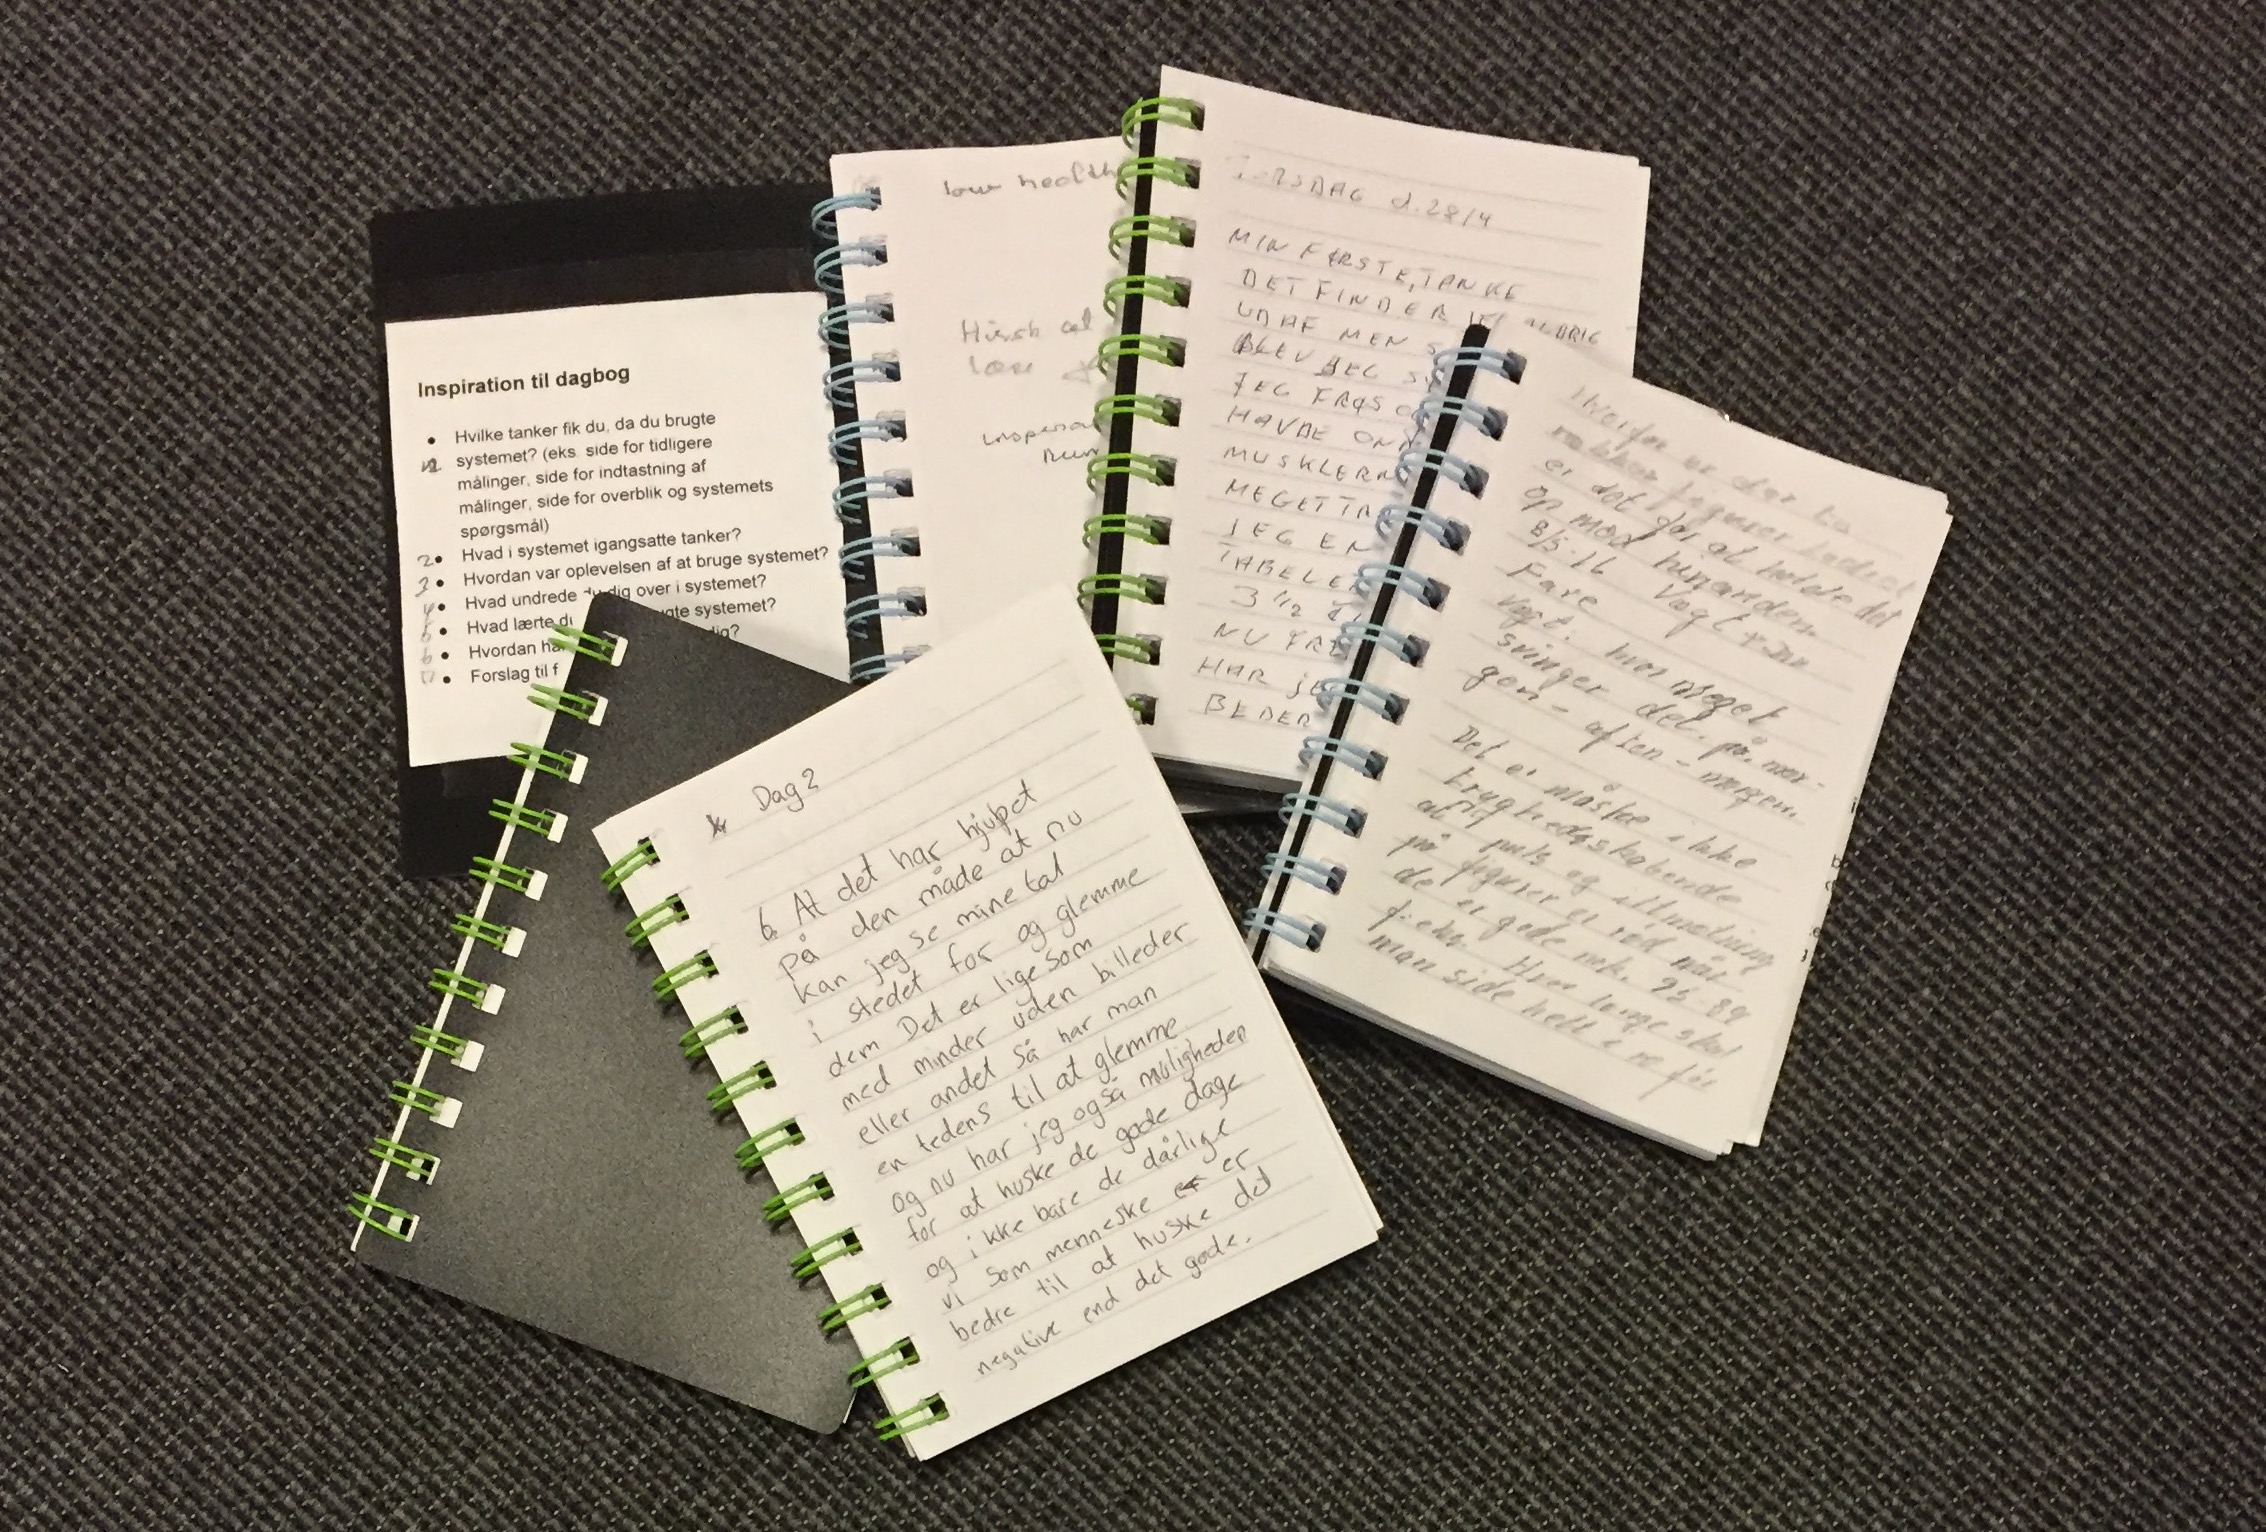 Inspiration til dagbog
Hvilke tanker fik du, da du brugte
systemet? (eks. side for tidligere
målinger, side for indtastning af
målinger, side for overblik og systemets
spørgsmål)
2 Hvad i systemet igangsatte tanker?
3 Hvordan var oplevelsen af at bruge systemet?
4 Hvad undrede du dig over i systemet?
5 Hvad lærte du gte systemet?
6 Hvordan ha dig?
Forslag til f
low health
Hirsk at
læse
TORSDAG d. 28/4
MIN FØRSTE, TANKE
DET FINDER JEG ALDRIG
UD AF MEN S
BLEV JEG SY
JEG FRØS O
HAVDE ON
MUSKLERN
MEGET TR
JEG EN
TABELE
3 1/2
NU
HAR JE
BEDER
Hvorfor er der to
er det for at holde det
op mod hinanden.
8/5-16 Vægt
Fare
Vægt. hvor meget
svinger det på mor-
gen - aften - morgen.
Det er måske ikke
tryghedsskabende
at puls og iltmætning
på figurer er rød når
de er gode nok. 95-89
f.eks. Hvor længe skal
man side helt i ro før
Dag 2
6. At det har hjulpet
på den måde at nu
kan jeg se mine tal
i stedet for og glemme
dem Det er lige som
med minder uden billeder
eller andet så har man
en tedens til at glemme
og nu har jeg også muligheden
for at huske de gode dage
og ikke bare de dårlige
vi som menneske er er
bedre til at huske det
negative end det gode.